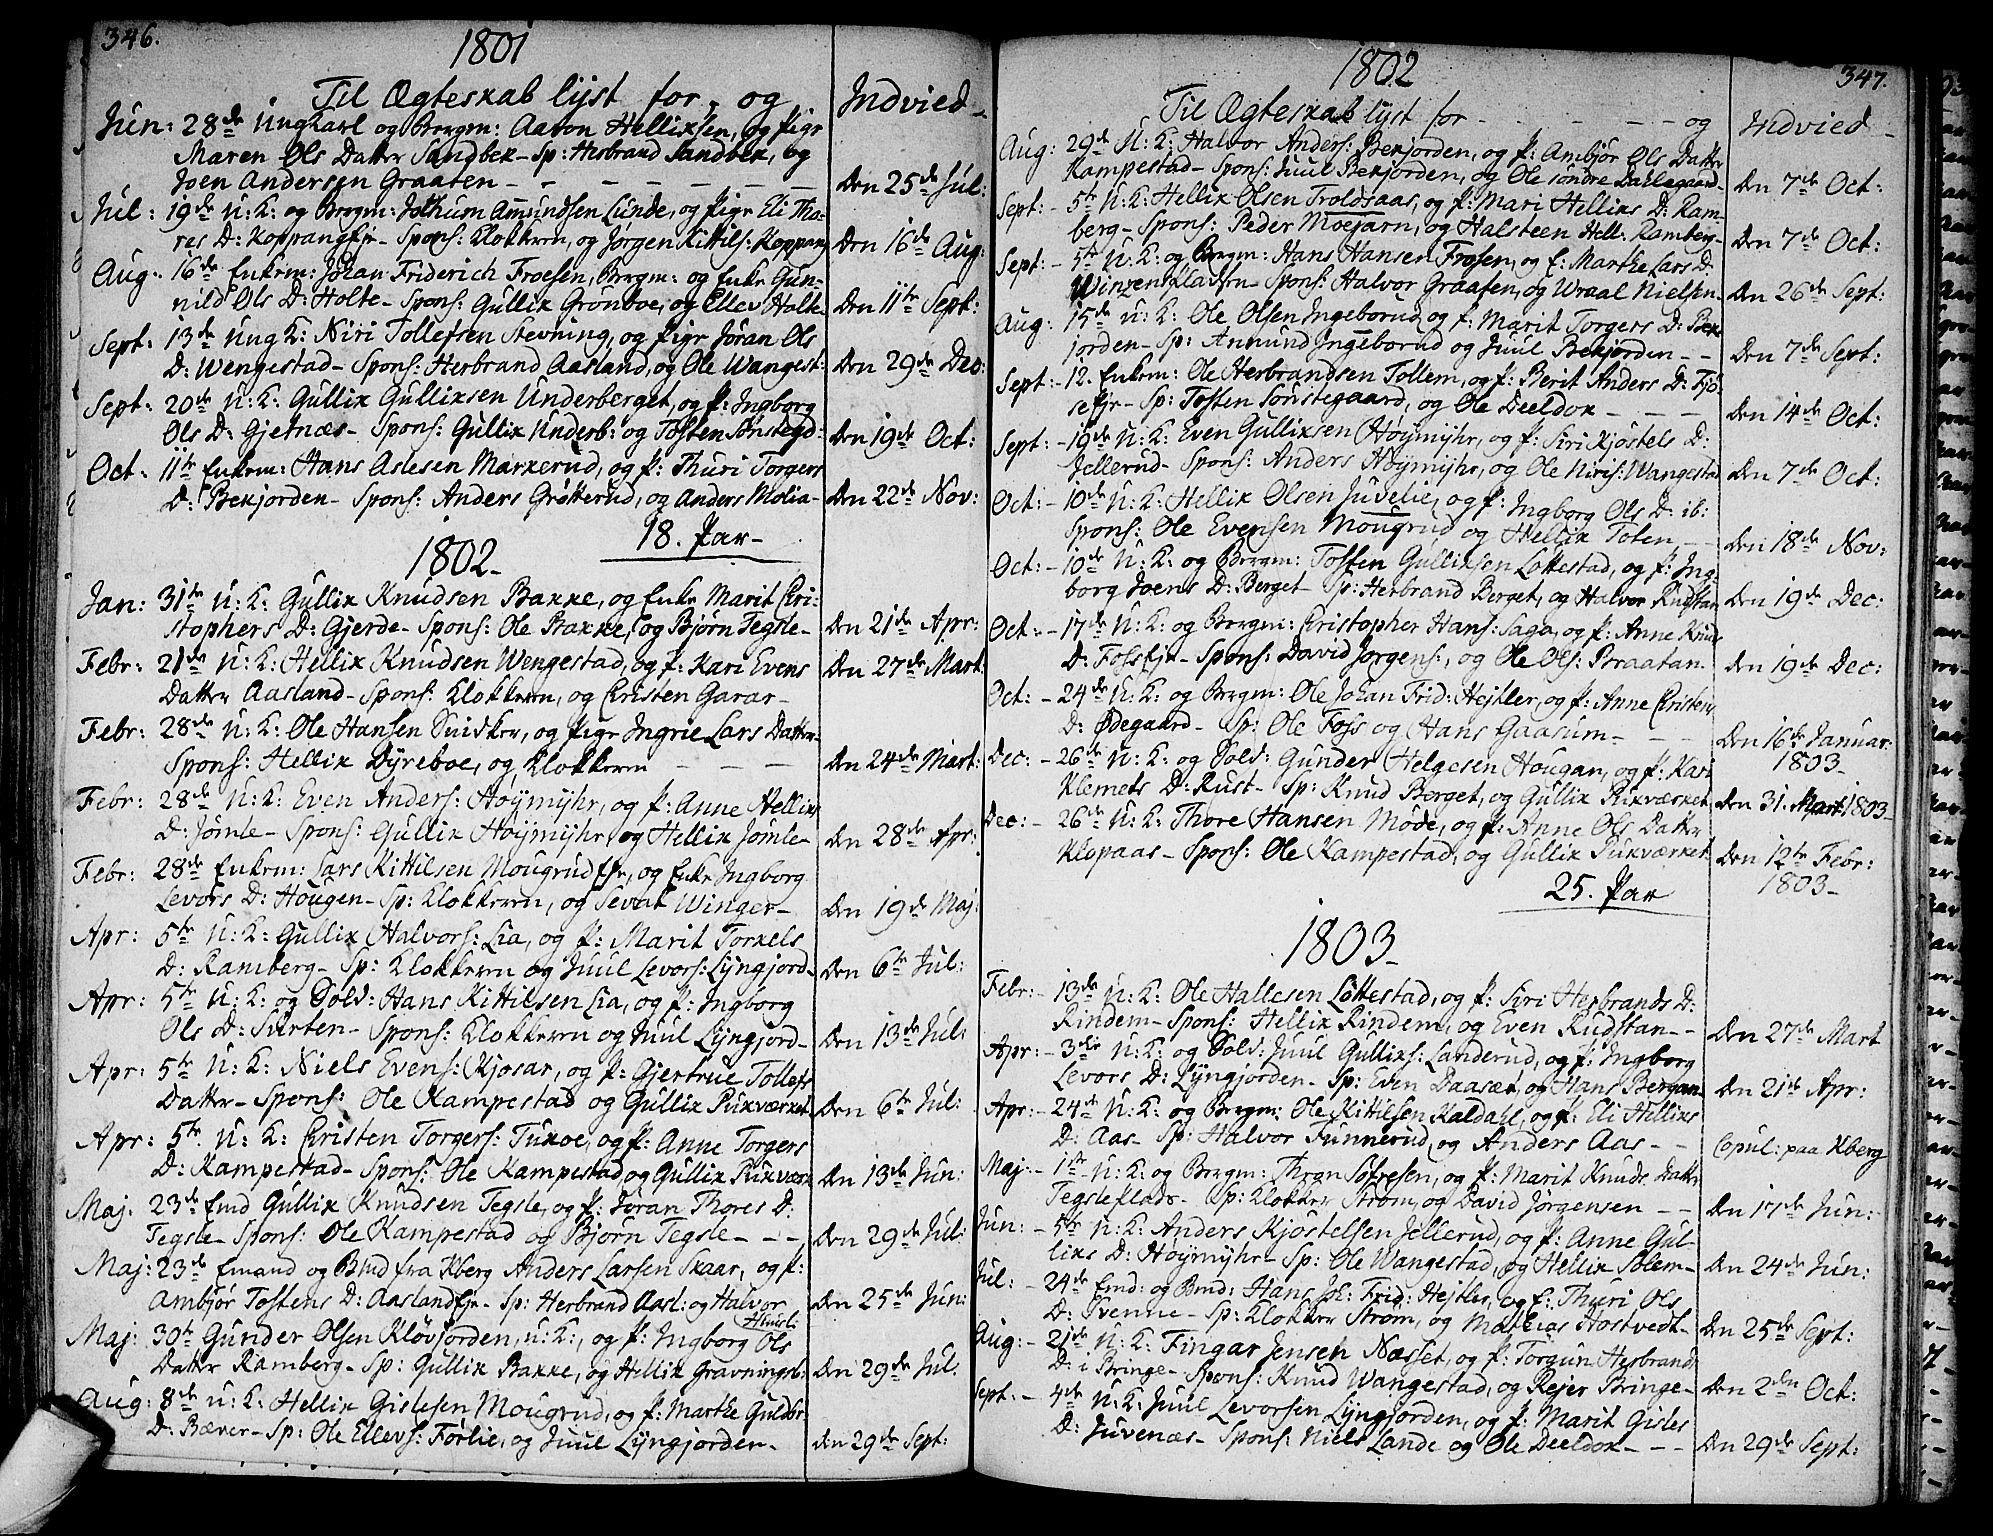 346.
1801
Til Ægteskab lyst for - og
Indvied -
Jun: 28de Ungkarl og Bergm: Aavon Hellixsen, og Pige
Maren Ols Datter Sandbek - Sp: Herbrand Sandbek, og
Joen Andersen Graaten - - - - - - Den 25de Jul:
Jul: 19de U: K: og Bergm: Jolhum Amundsen Lunde, og Pige Eli Tha-
res D: Koppangejr - Spons: Klokkern, og Jørgen Kittils: Koppang Den 16de Aug:
Aug: 16de Enkem: Johan Friderich Froesen, Bergm: og Enke Gun-
nild Ols D: Holte - Spons: Gullix Grønboe, og Ellev Holte - Den 11te Sept:
Sept: 13de Ung K: Niri Tollefsen Stevning, og Pige Jøran Ols
D: Wengestad - Spons: Herbrand Aasland, og Ole Wangest: Den 29de Dec:
Sept: 20de U: K: Gullix Gullixsen Underberget, og P: Ingborg
Ols D: Gjetnæs - Spons: Gullix Underb: og Tosten Sønstegd: Den 19de Oct:
Oct: 11te Enkem: Hans Aslesen Markerud, og P: Thuri Torgers
D: Bekjorden - Spons: Anders Grøtterud, og Anders Molia - Den 22de Nov:
18. Par -
1802 -
Jan: 31te U: K: Gullix Knudsen Bakke, og Enke Marit Chri-
stophers D: Gjerde - Spons: Ole Bakke, og Bjørn Tegsle - Den 21de Apr:
Febr: 21de U: K: Hellix Knudsen Wengestad, og P: Kari Evens Den 27de Mart:
Datter Aasland - Spons: Klokkern, og Christen Garar -
Febr: 28de U: K: Ole Hansen Snidker, og Pige Ingrie Lars Datter -
Spons: Hellix Dyreboe, og Klokkern - - - Den 24de Mart:
Febr: 28de U: K: Even Anders: Høymyhr, og P: Anne Hellixs
D: Jomle - Spons: Gullix Høymyhr, og Hellix Jomle - Den 28de Apr:
Febr: 28de Enkem: Lars Kittilsen Mougrudejr, og Enke Ingborg
Levors D: Hougen - Sp: Klokkern, og Sevat Winger - Den 19de Maj:
Apr: 5te U: K: Gullix Halvors: Lia, og P: Marit Torkels
D: Ramberg - Sp: Klokkern og Juul Levors: Lyngjord - Den 6te Jul:
Apr: 5te U: K: og Sold: Hans Kittilsen Lia, og P: Ingborg
Ols D: Sterten - Spons: Klokkern og Juul Lyngjord - Den 13de Jul:
Apr: 5te U: K: Niels Evens: Kjosar, og P: Gjertrue Tollefs
Datter - Spons: Ole Kampestad og Gullix Pukværket Den 6te Jul:
Apr: 5te U: K: Christen Torgers: Tukoe, og P: Anne Torgers
D: Kampestad - Spons: Ole Kampestad og Gullix Pukværk Den 13de Jun:
Maj. 23de Emd Gullix Knudsen Tegsle, og P: Jøran Thores D:
Tegsle - Spons: Ole Kampestad og Bjørn Tegsle - - - Den 29de Jul:
Maj: 23de Emand og Bmd fra Kberg Anders Larsen Skaar, og P:
Ambjør Tostens D: Aaslandejr - Sp: Herbrand Aasl: og Halvor Den 25de Jun:
Maj: 30te Gunder Olsen Kløvjorden, U: K:, og P: Ingborg Ols
Datter Ramberg - Sp: Gullix Bakke, og Hellix Gravningsb: Den 29de Jul:
Aug: 8de U: K: Hellix Gislesen Mougrud, og P: Marthe Guldbr
D: Bæver - Sp: Ole Ellevs: Førlie, og Juul Lyngjorden - Den 29de Sept:
347.
1802
Til Ægteskab lyst for - - - - - og
Indvied -
Aug: 29de U: K: Halvor Anders: Bekjorden, og P: Ambjør Ols Datter
Kampestad - Spons: Juul Bekjorden, og Ole søndre Daalegaard - Den 7de Oct:
Sept: - 5te U: K: Hellix Olsen Troldsaas, og P: Mari Hellixs D: Ram-
berg - Spons: Peder Moejarn, og Halsteen Hell: Ramberg - Den 7de Oct:
Sept: - 5te U: K: og Bergm: Hans Hansen Frosen, og E: Marthe Lars D:
Winzensladsen - Spons: Halvor Graaten, og Wraal Nielsen - Den 26de Sept:
Aug: 15de U: K: Ole Olsen Ingeborud og P: Marit Torgers D: Bek-
jorden - Sp: Anmund Ingeborud og Juul Bekjorden - - Den 7de Sept:
Sept: - 12. Enkem: Ole Herbrandsen Tollem, og P: Berit Anders D: Fjø-
sejr - Sp: Tosten Sønstegaard, og Ole Deeldox - - - Den 14de Oct:
Sept: - 19de U: K: Even Gullixsen Høymyhr, og P: Siri Kjøstels D:
Jellerud - Spons: Anders Høymyhr, og Ole Niris: Wangestad Den 7de Oct:
Oct: - 10de U: K: Hellix Olsen Juvelie, og P: Ingborg Ols D: ib:
Spons: Ole Evensen Mougrud og Hellix Toten - - Den 18de Nov:
Oct: - 10de U: K: og Bergm: Tosten Gullixsen Lottestad, og P: Ing-
borg Joens D: Berget - Sp: Herbrand Berget, og Halvor Rudstan Den 19de Dec:
Oct: - 17de U: K: og Bergm: Christopher Hans: Saga, og P: Anne Knuds
D: Fossejr - Spons: David Jorgens:, og Ole Ols: Braatan - Den 19de Dec:
Oct: - 24de U: K: og Bergm: Ole Johan Frid: Hejtler, og P: Anne Christens
D: Ødegaard - Sp: Ole Foss og Hans Gaasum - - Den 16de Januar: 1803 -
Dec: - 26de U: K: og Sold: Gunder Helgesen Hougan, og P: Kari
Klemets D: Rust - Sp: Knud Berget, og Gullix Pukværket Den 31. Mart 1803 -
Dec: - 26de U: K: Thore Hansen Mode, og P: Anne Ols Datter
Klopaas - Spons: Ole Kampestad, og Gullix Pukværket Den 12te Febr: 1803 -
25. Par
1803 -
Febr: - 13de U: K: Ole Hallesen Lottestad, og P: Siri Herbrands D:
Rindem - Spons: Hellix Rindem, og Even Rudstan - - Den 27de Mart
Apr: - 3die U: K: og Sold: Juul Gullixs: Landerud, og P: Ingborg
Levors D: Lyngjorden - Sp: Even Daaset, og Hans Bergan - Den 21de Apr:
Apr: - 24de U: K: og Bergm: Ole Kittilsen Kaldahl, og P: Eli Hellixs
D: Aas - Sp: Halvor Funnerud, og Anders Aas - - Copul: paa Kberg
Maj: - 1ste U: K: og Bergm: Thron Sofresen, og P: Marit Knuds Datter
Tegsleflads - Sp: Klokker Strøm, og David Jørgensen - - Den 17de Jun:
Jun: - 5te U: K: Anders Kjøstelsen Jellerud, og P: Anne Gul-
lixs D: Høymyhr - Sp: Ole Wangestad, og Hellix Solem - Den 24de Jun:
Jul: - 24de Emd: og Bmd: Hans Joh: Frid: Hejtler, og E: Thuri Ols
D: Svenne - Sp: Klokker Strøm, og Mathias Hostvedt - Den 25de Sept:
Aug: - 21de U: K: Fingar Jensen Næsset, og P: Torgun Herbrands
D: i Bringe - Spons: Knud Wangestad, og Rejer Bringe - Den 2den Oct:
Sept: - 4de U: K: Juul Levorsen Lyngjorden, og P: Marit Gisles
D: Juvenæs - Spons: Niels Lande og Ole Deeldox - - - Den 29de Sept: